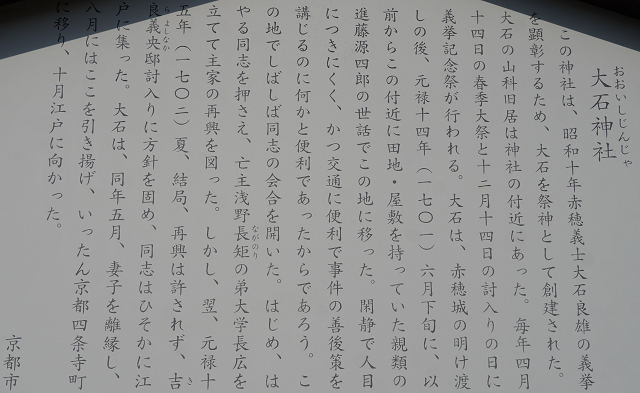 大石神社
おおいしじんじゃ
この神社は、昭和十年赤穂義士大石良雄の義挙
を顕彰するため、大石を祭神として創建された。
大石の山科旧居は神社の付近にあった。毎年四月
十四日の春季大祭と十二月十四日の討入りの日に
義挙記念祭が行われる。大石は、赤穂城の明け渡
しの後、元禄十四年(一七〇一)六月下旬に、以
前からこの付近に田地・屋敷を持っていた親類の
進藤源四郎の世話でこの地に移った。閑静で人目
につきにくく、かつ交通に便利で事件の善後策を
講じるのに何かと便利であったからであろう。こ
の地でしばしば同志の会合を開いた。はじめ、は
やる同志を押さえ、亡主浅野長矩の弟大学長広を
ながのり
立てて主家の再興を図った。しかし、翌、元禄十
五年(一七〇二)夏、結局、再興は許されず、吉
き
良義央邸討入りに方針を固め、同志はひそかに江
らよしなか
戸に集った。大石は、同年五月、妻子を離縁し、
八月にはここを引き揚げ、いったん京都四条寺町
に移り、十月江戸に向かった。
京都市